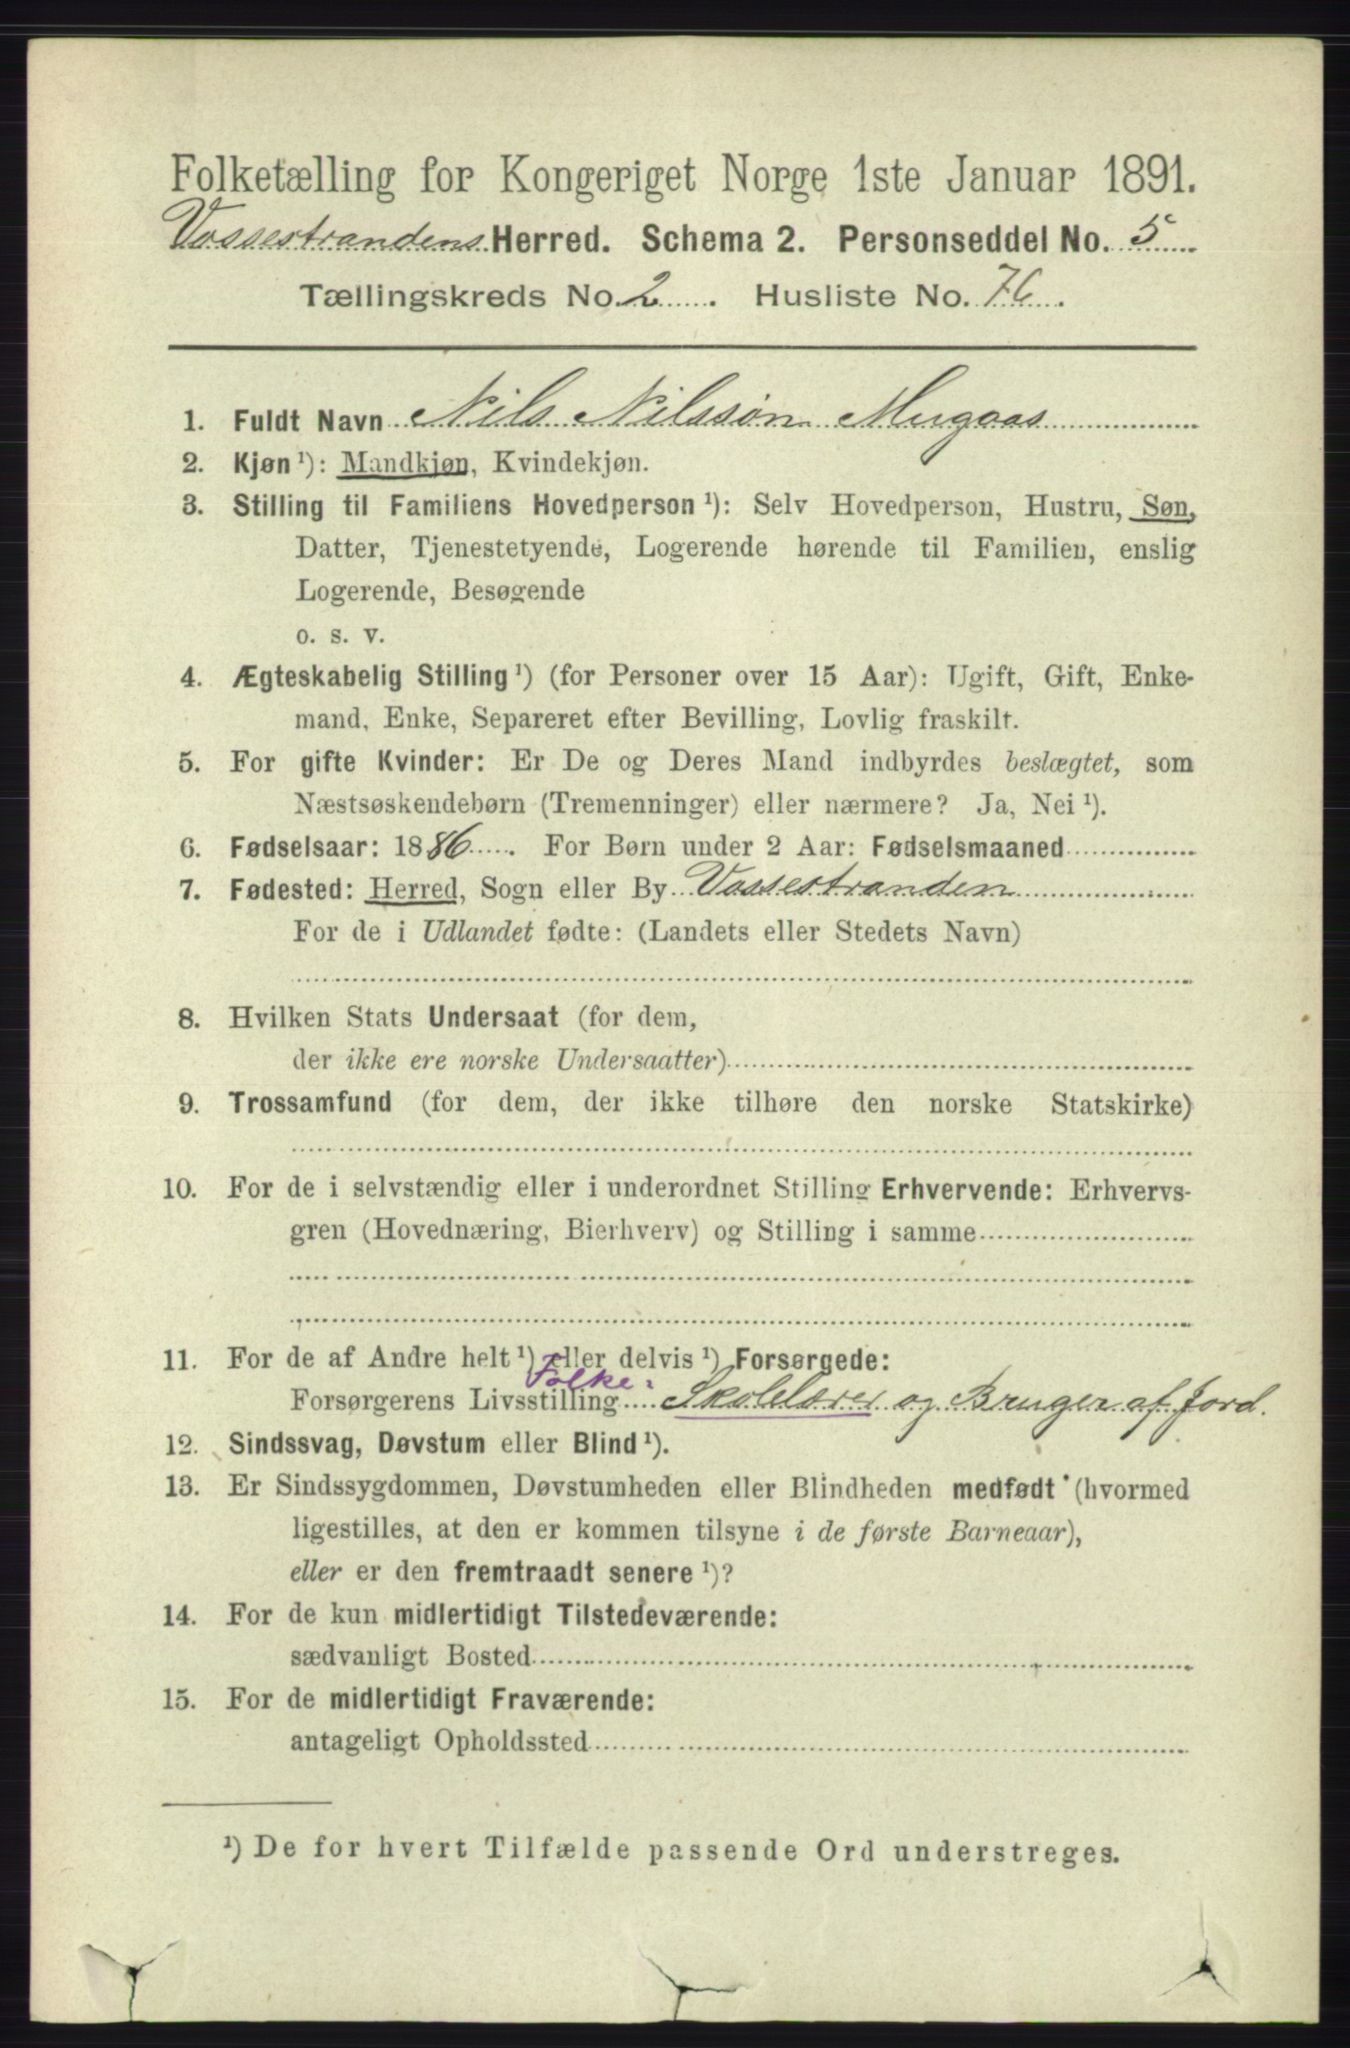 Folketælling for Kongeriget Norge 1ste Januar 1891.
Vossestrandens Herred. Schema 2. Personseddel No. 5
Tællingskreds No. 2. Husliste No. 76.
1. Fuldt Navn Nils Nilssøn Mugaas
2. Kjøn ¹): Mandkjøn, Kvindekjøn.
3. Stilling til Familiens Hovedperson ¹): Selv Hovedperson, Hustru, Søn,
Datter, Tjenestetyende, Logerende hørende til Familien, enslig
Logerende, Besøgende
o. s. v.
4. Ægteskabelig Stilling ¹) (for Personer over 15 Aar): Ugift, Gift, Enke-
mand, Enke, Separeret efter Bevilling, Lovlig fraskilt.
5. For gifte Kvinder: Er De og Deres Mand indbyrdes beslægtet, som
Næstsøskendebørn (Tremenninger) eller nærmere? Ja, Nei ¹).
6. Fødselsaar: 1886. For Børn under 2 Aar: Fødselsmaaned
7. Fødested: Herred, Sogn eller By Vossestranden
For de i Udlandet fødte: (Landets eller Stedets Navn)
8. Hvilken Stats Undersaat (for dem,
der ikke ere norske Undersaatter)
9. Trossamfund (for dem, der ikke tilhøre den norske Statskirke)
10. For de i selvstændig eller i underordnet Stilling Erhvervende: Erhvervs-
gren (Hovednæring, Bierhverv) og Stilling i samme
11. For de af Andre helt ¹) eller delvis ¹) Forsørgede:
Folke-
Forsørgerens Livsstilling Skolelærer og Bruger af Jord.
12. Sindssvag, Døvstum eller Blind ¹).
13. Er Sindssygdommen, Døvstumheden eller Blindheden medfødt (hvormed
ligestilles, at den er kommen tilsyne i de første Barneaar),
eller er den fremtraadt senere ¹)?
14. For de kun midlertidigt Tilstedeværende:
sædvanligt Bosted
15. For de midlertidigt Fraværende:
antageligt Opholdssted
¹) De for hvert Tilfælde passende Ord understreges.